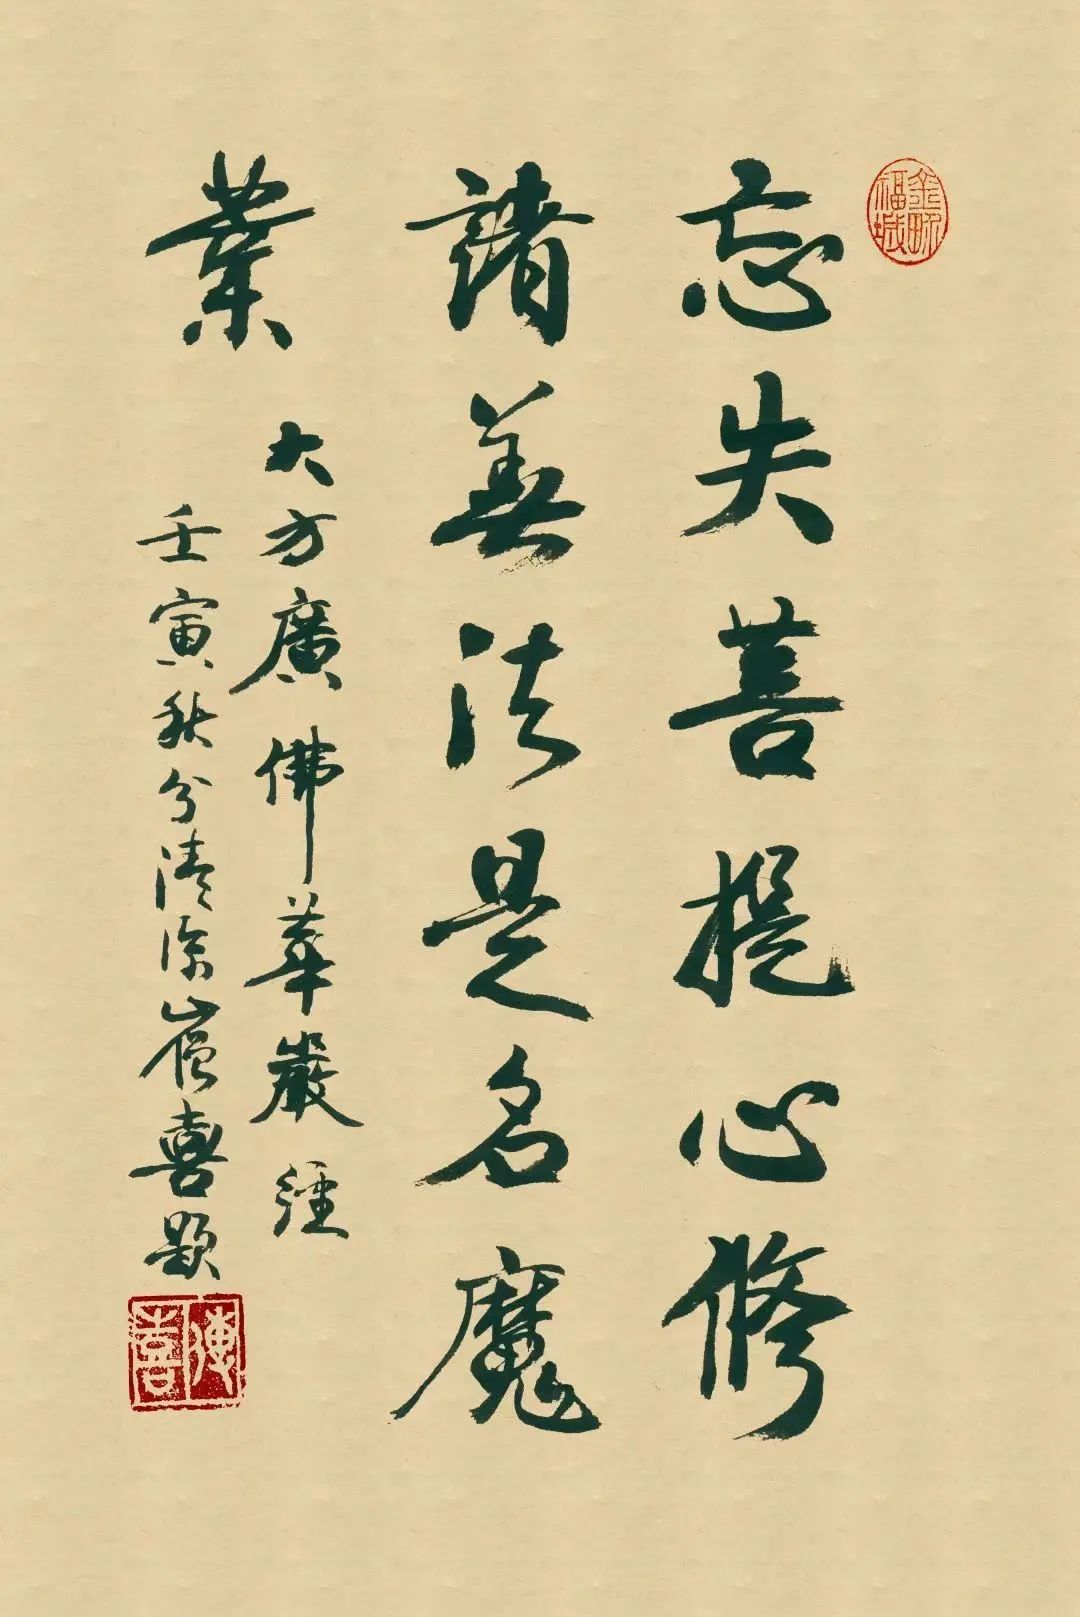 忘失菩提心修
諸善法是名魔
業
大方廣佛華嚴經
壬寅秋分清涼崔喜題
傳喜
福城